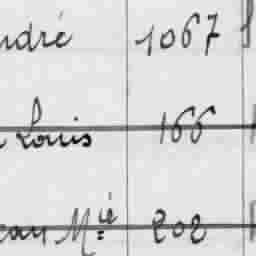 ndré 1067
Louis 166
ean Mié 202